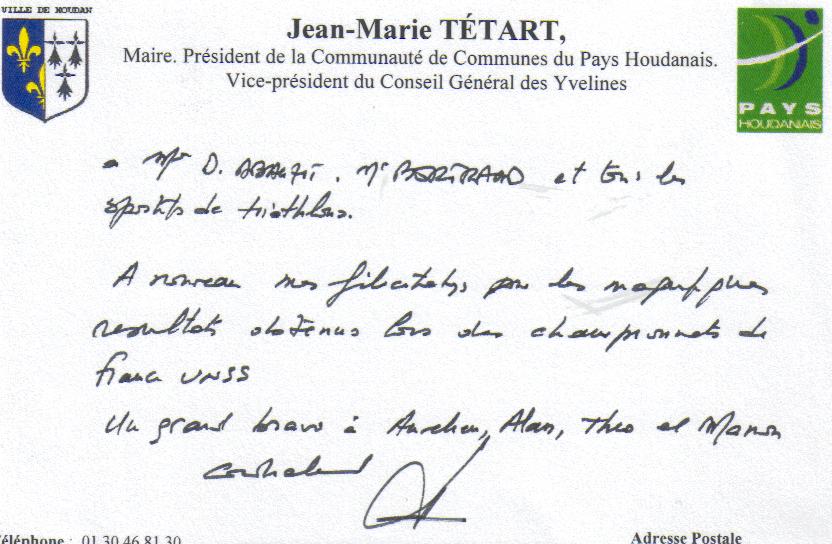 VILLE DE HOUDAN
Jean-Marie TÉTART,
Maire. Président de la Communauté de Communes du Pays Houdanais.
Vice-président du Conseil Général des Yvelines
PAYS
HOUDANAIS
a Mr D. Mr BERTRAND et tous les
sportifs de triathlons.
A nouveau mes félicitations pour les magnifiques
resultats obtenus lors des championnats de
France UNSS
Un grand bravo à Aurelien, Alan, Theo et Manon
Cordialement
Téléphone : 01 30 46 81 30
Adresse Postale